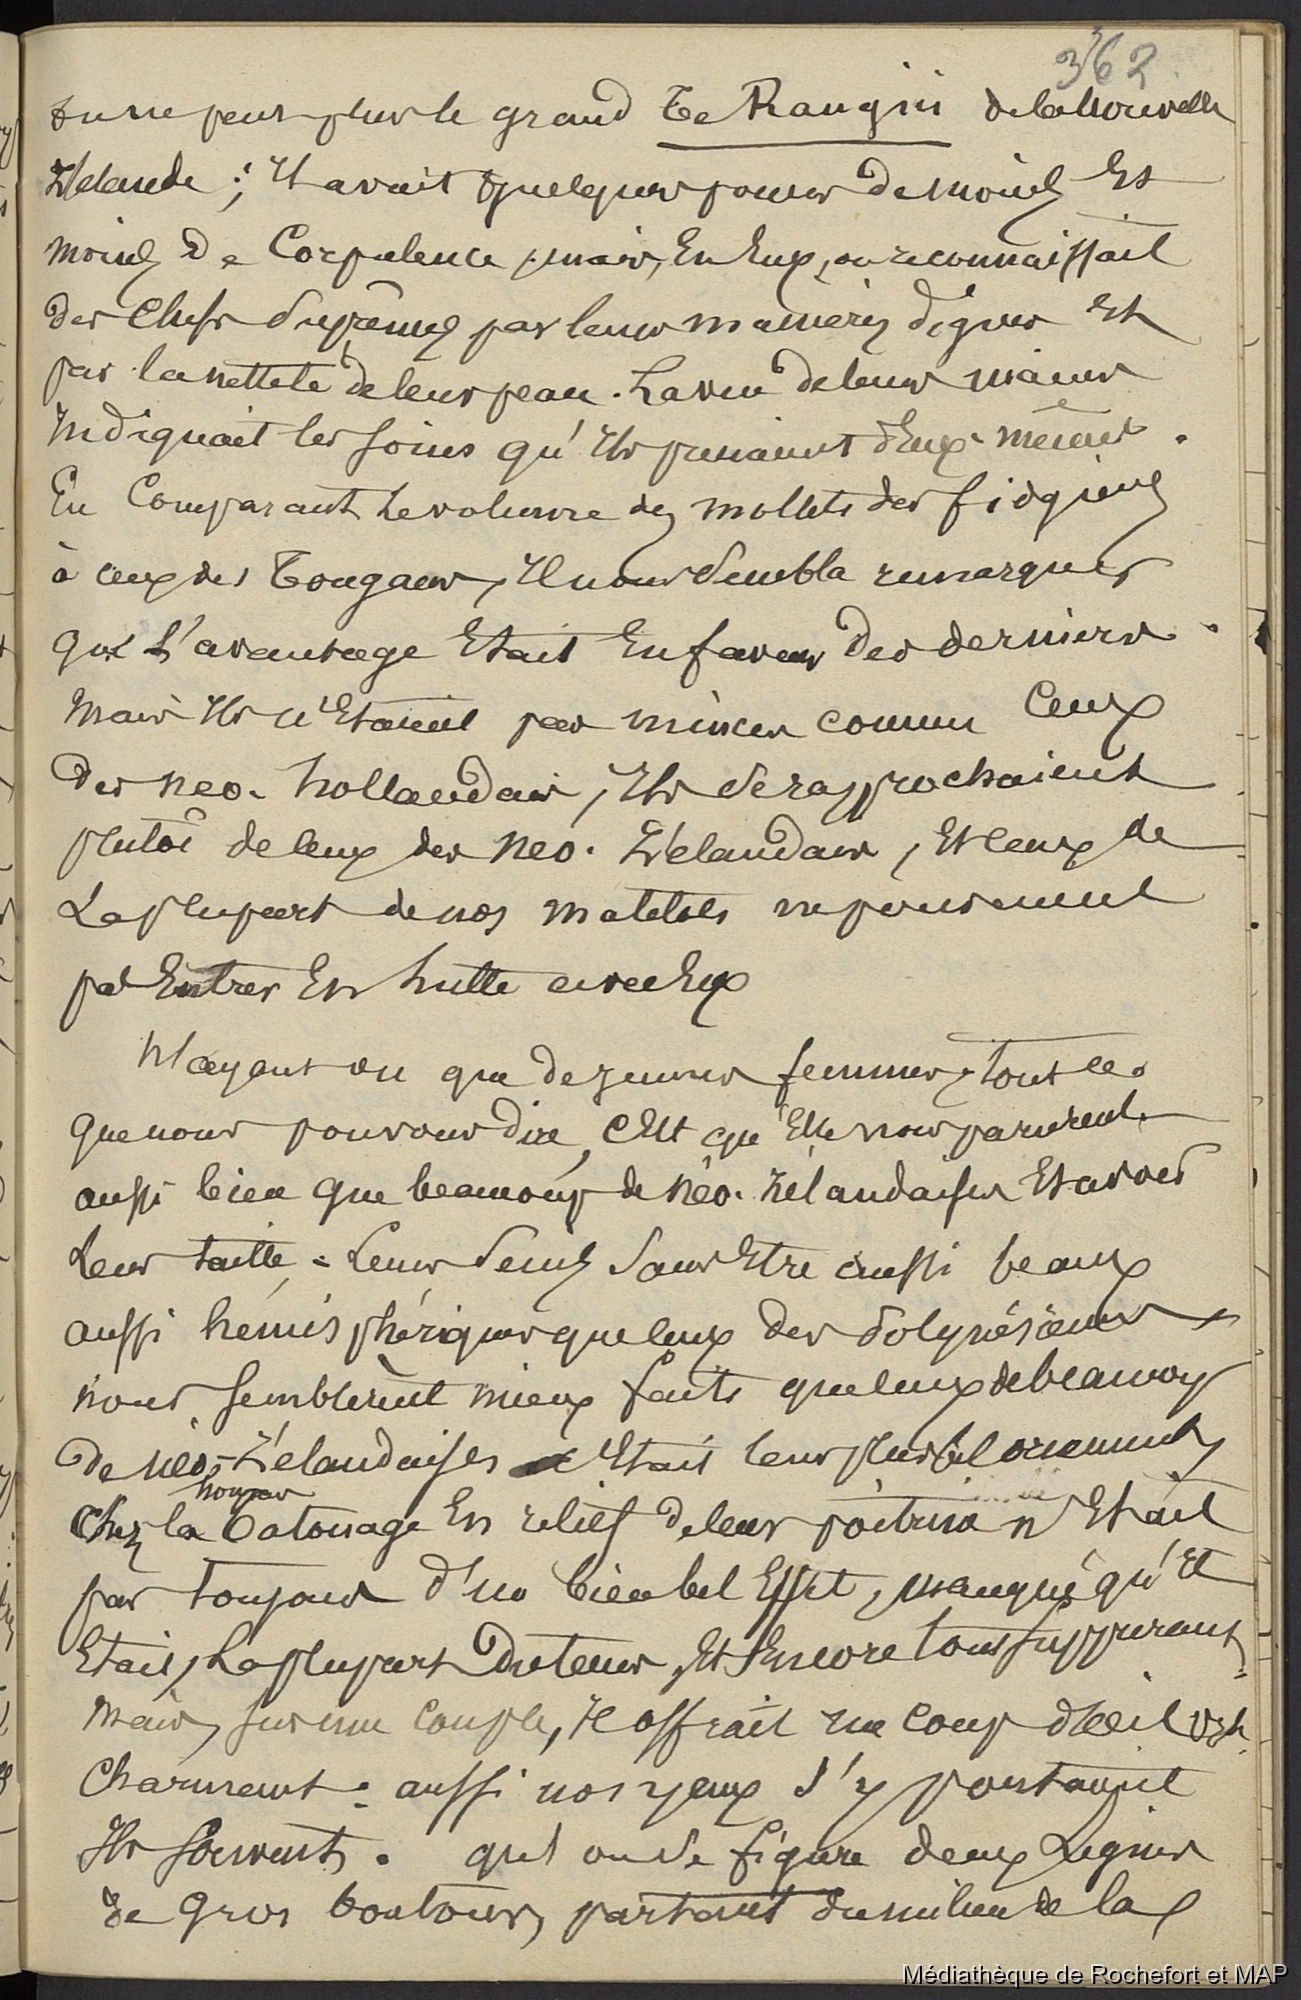 362
un peu plus le grand Te Rangui de la Nouvelle
Zélande ; Il avait quelques pouces de moins Et
moins de Corpulence ; mais, En Eux, on reconnaissait
des Chefs Suprêmes par leurs manières dignes Et
par la netteté de leur peau. La vue de leurs mains
Indiquait les soins qu'Ils prenaient d'Eux-mêmes.
En Comparant Le volume des mollets des fidgiens
à ceux des Tongaens, Il nous Sembla remarquer
que L'avantage Etait En faveur des derniers.
Mais Ils n'Etaient pas minces comme Ceux
des neo-hollandais, Ils Se rapprochaient
plutôt de Ceux des neo-Zélandais, Et Ceux de
La plupart de nos matelots ne pouvaient
pas Entrer En lutte avec Eux
N'ayant vu que de jeunes femmes, tout ce
que nous pouvons dire, C'Est qu'Elles nous parurent
aussi bien que beaucoup de néo-Zélandaises Et avoir
Leur taille ; Leurs Seins Sans Etre aussi beaux
aussi hémisphériques que Ceux des Polynésiennes
nous Semblèrent mieux faits que Ceux de beaucoup
de néo-Zélandaises C'Etait leur plus bel ornement,
nous
Chez la Tatouage En relief de leur poitrine n'Etait
pas toujours d'un bien bel Effet, manqué qu'Il
Etait, La plupart du tems, Et Encore tout Suppurant,
Mais, sur une Couple, Il offrait un Coup d'œil vrt.
Charmant ; aussi nos yeux S'y portaient
Ils Souvent. qu'on Se figure deux Lignes
de Gros boutons, partant du milieu de la
Médiathèque de Rochefort et MAP